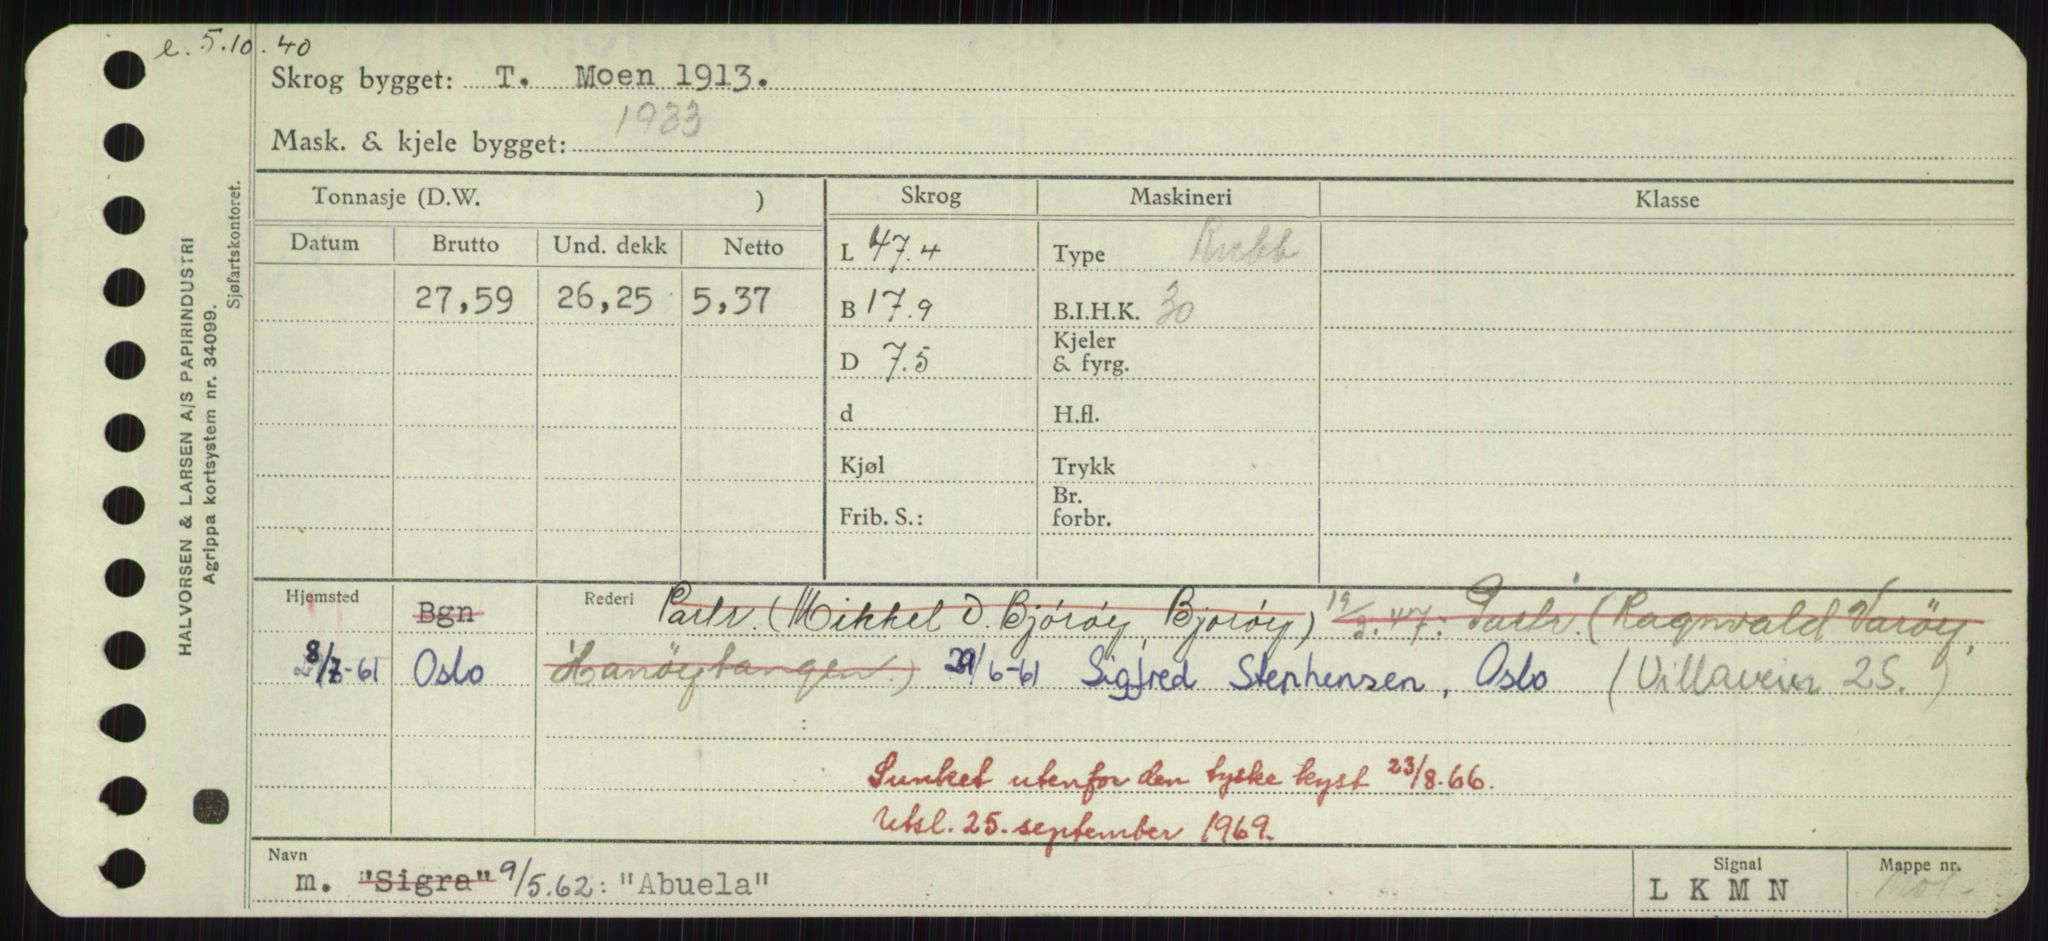 e. 5.10.40
Skrog bygget: T. Moen 1913.
Mask. & kjele bygget: 1933
Tonnasje (D.W. ) Skrog Maskineri Klasse
Datum Brutto Und. dekk Netto L 47.4 Type
27,59 26,25 5,37 B 17.9 B.I.H.K. 30
D 7.5 Kjeler & fyrg.
d H.fl.
Kjøl Trykk
Frib. S.: Br. forbr.
HALVORSEN & LARSEN A/S PAPIRINDUSTRI
Agrippa kortsystem nr. 34099.
Sjøfartskontoret.
Hjemsted Bgn Rederi Partr. (Mikkel D. Bjørøy, Bjørøy) 19/3.47. Partr. (Ragnvald Varøy,
8/7-61 Oslo Hanøytangen.) 29/6-61 Sigfred Stephensen, Oslo (Villaveien 25.)
Sunket utenfor den tyske kyst 23/8.66.
Utsl. 25. september 1969.
Navn Signal Mappe nr.
m. "Sigra" 9/5.62: "Abuela" L K M N Mot-